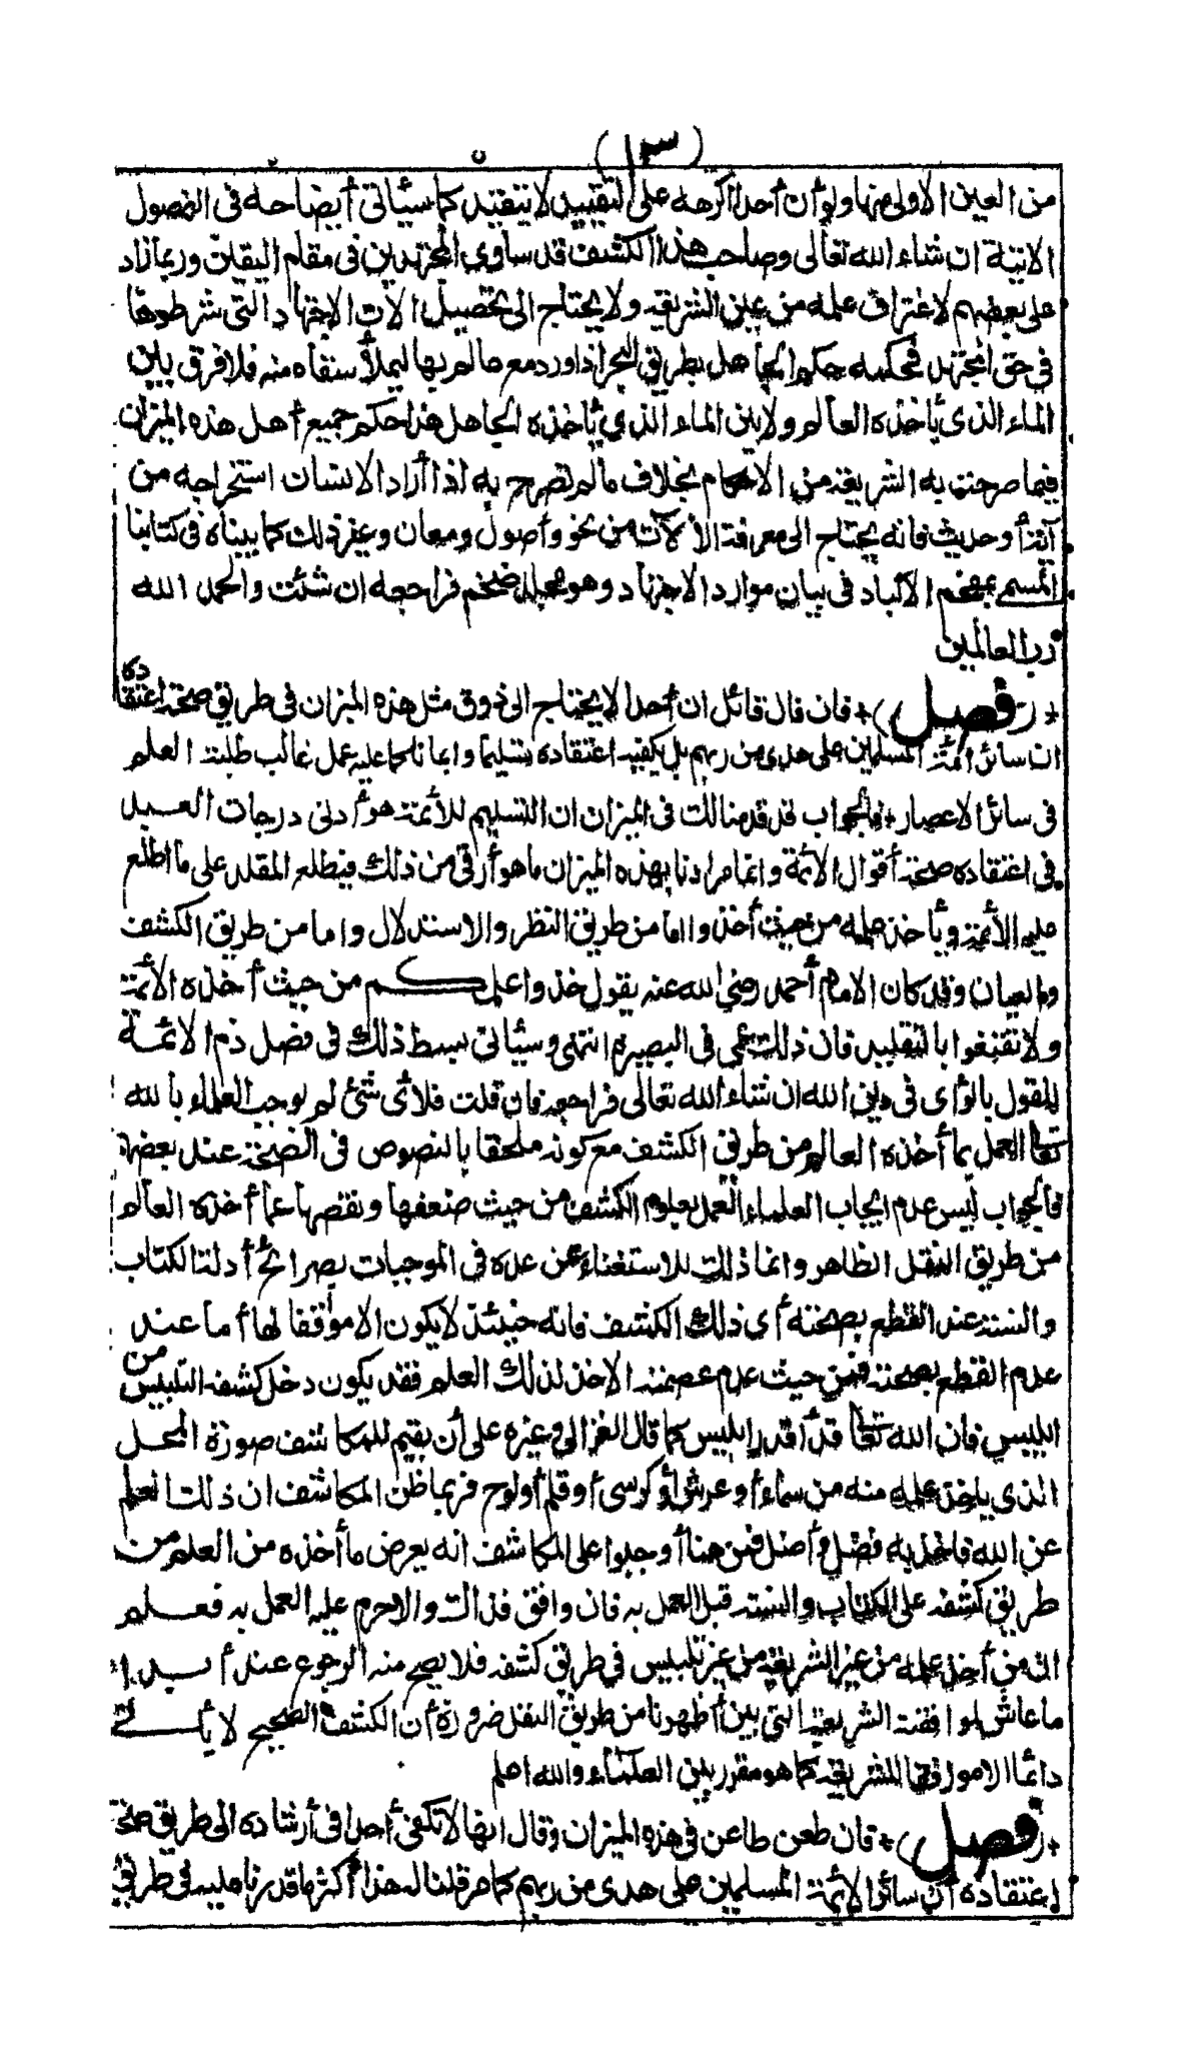 (١٣)
من العين الاولى منها ولو أن أحدا اكرهه على التقييد لا يتقيد كما سيأتى أيضاحه فى الفصول
الاتية ان شاء الله تعالى وصاحب هذا الكشف قد ساوى المجتهدين فى مقام اليقين وربما زاد
على بعضهم لاغتراف علمه من عين الشريعة ولا يحتاج الى تحصيل الات الاجتهاد التى شرطوها
فى حق المجتهد فحكمه حكم الجاهل بطريق البحر اذا ورد مع عالم بها ليملأ سقاه منه فلا فرق بين
الماء الذى يأخذه العالم ولا بين الماء الذى يأخذه الجاهل هذا حكم جميع أهل هذه الميزان
فيما صرحت به الشريعة من الاحكام بخلاف مالم تصرح به اذا أراد الانسان استخراجه من
آية أو حديث فانه يحتاج الى معرفة الألآت من نحو وأصول ومعان وغير ذلك كما بيناه فى كتابنا
المسمى بمفحم الاكباد فى بيان موارد الاجتهاد وهو مجلد ضخم فراجعه ان شئت والحمد الله
رب العالمين
*(فصل)* فان قال قائل ان أحدا لا يحتاج الى ذوق مثل هذه الميزان فى طريق صحة اعتقاده
ان سائر ائمة المسلمين على هدى من ربهم بل يكفيه اعتقاده تسليما وايمانا كما عليه عمل غالب طلبة العلم
فى سائر الاعصار * فالجواب قد قدمنا لك فى الميزان ان التسليم للأئمة هو أدنى درجات العبد
فى اعتقاده صحة أقوال الائمة وانما مرادنا بهذه الميزان ما هو أرقى من ذلك فيطلع المقلد على ما اطلع
عليه الأئمة ويأخذ علمه من حيث أخذوا اما من طريق النظر والاستدلال واما من طريق الكشف
والعيان وقد كان الامام أحمد رضي الله عنه يقول خذوا علمكم من حيث أخذه الأئمة
ولا تقنعوا بالتقليد فان ذلك عمى فى البصيرة انتهى وسيأتى بسط ذلك فى فصل ذم الائمة
للقول بالرأى فى دين الله ان شاء الله تعالى فراجعه فان قلت فلأى شئ لم يوجب العلماء بالله
تعالى العمل بما أخذه العالم من طريق الكشف مع كونه ملحقا بالنصوص فى الصحة عند بعضهم
فالجواب ليس عدم ايجاب العلماء العمل بعلوم الكشف من حيث ضعفها ونقصها عما أخذه العالم
من طريق النقل الظاهر وانما ذلك للاستغناء عن عده فى الموجبات بصرائح أدلة الكتاب
والسنة عند القطع بصحته أى ذلك الكشف فانه حينئذ لا يكون الا موافقا لها أما عند
عدم القطع بصحته فمن حيث عدم عصمة الاخذ لذلك العلم فقد يكون دخل كشفه التلبيس من
ابليس فان الله تعالى قد أقدر ابليس كما قال الغزالى وغيره على أن يقيم للمكاشف صورة المحل
الذى يأخذ علمه منه من سماء أو عرش أو كرسى أو قلم أو لوح فربما ظن المكاشف ان ذلك العلم
عن الله فاخذ به فضل وأضل فمن هنا أوجبوا على المكاشف انه يعرض ما أخذه من العلم من
طريق كشفه على الكتاب والسنة قبل العمل به فان وافق فذاك والا حرم عليه العمل به فعلم
ان من أخذ علمه من عين الشريعة من غير تلبيس في طريق كشفه فلا يصح منه الرجوع عنه أبدا
ما عاش لموافقته الشريعة التى بين أظهرنا من طريق النقل ضرورة أن الكشف الصحيح لا يأتى
دائما الا موافقا للشريعة كما هو مقرر بين العلماء والله اعلم
*(فصل)* فان طعن طاعن فى هذه الميزان وقال انها لا تكفى أحدا فى أرشاده الى طريق صحة
اعتقاده أن سائر الائمة المسلمين على هدى من ربهم كما مر قلنا له هذا أكثر ما قدرنا عليه فى طريق